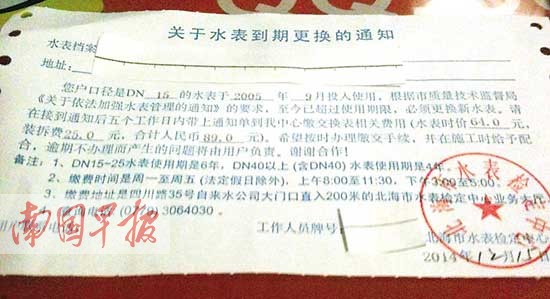 关于水表到期更换的通知
水表档案
地址:
您户口径是DN 15 的水表于2005年 9月投入使用，根据市质量技术监督局
《关于依法加强水表管理的通知》的要求，至今已超过使用期限，必须更换新水表。请
在接到通知后五个工作日内带上通知单到我中心缴交换表相关费用(水表时价64.0元，
装拆费25.0元，合计人民币89.0元)。希望按时办理缴交手续，并在施工时给予配
合，逾期不办理而产生的问题将由用户负责。谢谢合作!
备注：1、DN15-25水表使用期是6年，DN40以上(含DN40)水表使用期是4年。
2、缴费时间是周一至周五(法定假日除外)，上午8:00至11:30，下午3:00至5:00。
3、缴费地址是四川路35号自来水公司大门口直入200米的北海市水表检定中心业务大厅
查询电话(0779)3064030.
南国早报
电话:
工作人员牌号:
北海市水表检定中心
2014年12月15日